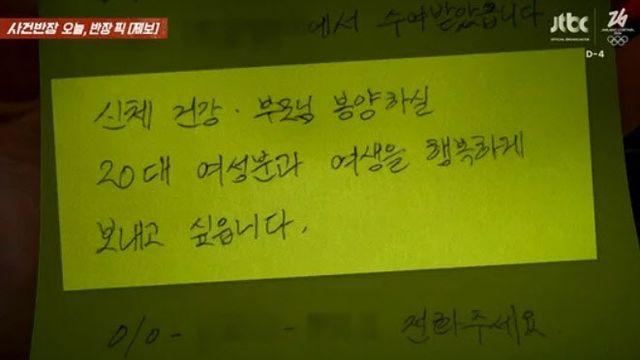 사건반장 오늘, 반장 픽 [제보]
jtbc
OFFICIAL BROADCASTER
D-4
에서 수여받았습니다
신체 건강·부모님 봉양하실
20대 여성분과 여생을 행복하게
보내고 싶읍니다.
010- - 전화주세요.